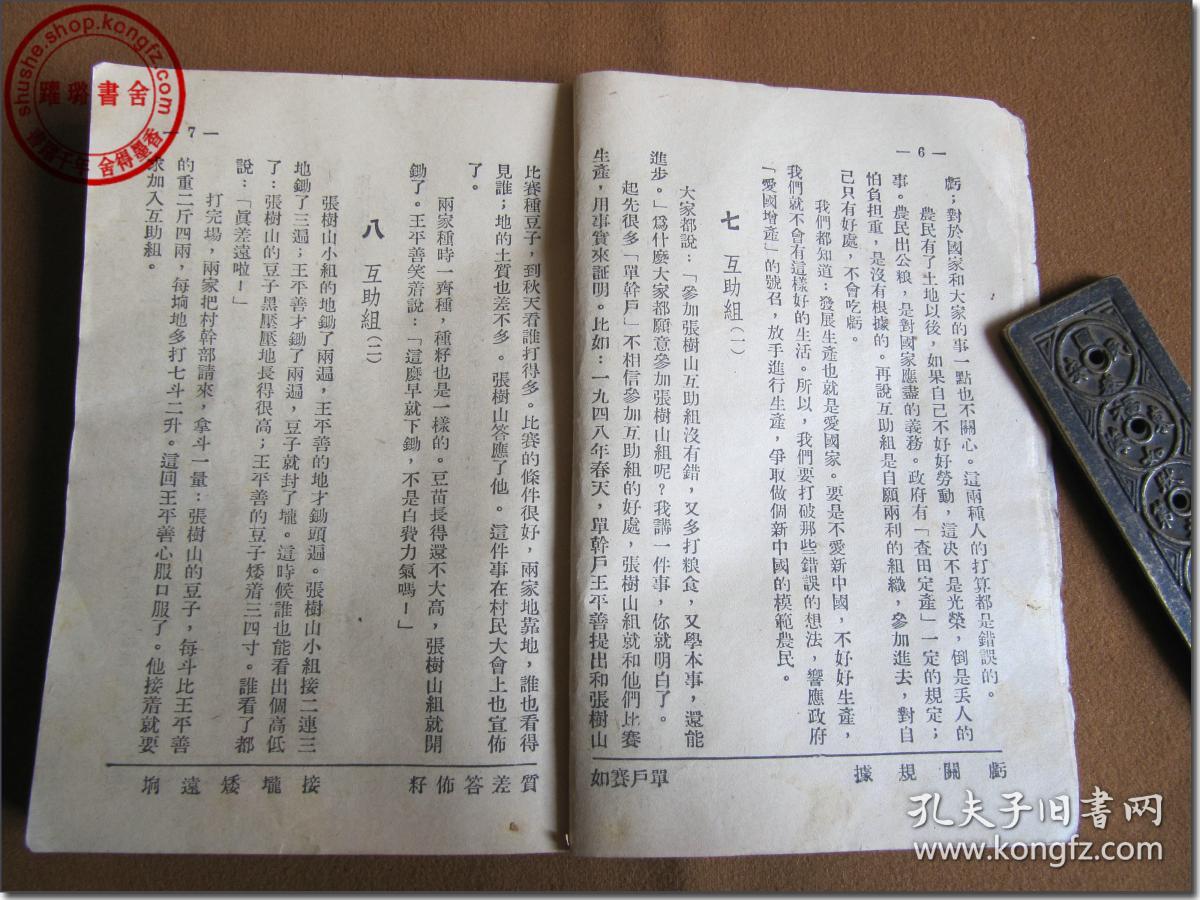 — 6 —
虧；對於國家和大家的事一點也不關心。這兩種人的打算都是錯誤的。
農民有了土地以後，如果自己不好好勞動，這決不是光榮，倒是丢人的
事。農民出公粮，是對國家應盡的義務。政府有「查田定產」一定的規定；
怕負担重，是沒有根據的。再說互助組是自願兩利的組織，參加進去，對自
己只有好處，不會吃虧。
我們都知道：發展生產也就是愛國家。要是不愛新中國，不好好生產，
我們就不會有這樣好的生活。所以，我們要打破那些錯誤的想法，響應政府
「愛國增產」的號召，放手進行生產，爭取做個新中國的模範農民。
七 互助組（一）
大家都說：「參加張樹山互助組沒有錯，又多打粮食，又學本事，還能
進步。」爲什麼大家都願意參加張樹山組呢？我講一件事，你就明白了。
起先很多「單幹戶」不相信參加互助組的好處，張樹山組就和他們比賽
生產，用事實來証明。比如：一九四八年春天，單幹戶王平善提出和張樹山
虧 關 規 據
單戶賽如
— 7 —
比賽種豆子，到秋天看誰打得多。比賽的條件很好，兩家地靠地，誰也看得
見誰；地的土質也差不多。張樹山答應了他。這件事在村民大會上也宣佈
了。
兩家種時一齊種，種籽也是一樣的。豆苗長得還不大高，張樹山組就開
鋤了。王平善笑着說：「這麼早就下鋤，不是白費力氣嗎！」
八 互助組（二）
張樹山小組的地鋤了兩遍，王平善的地才鋤頭遍。張樹山小組接二連三
地鋤了三遍；王平善才鋤了兩遍，豆子就封了壠。這時候誰也能看出個高低
了：張樹山的豆子黑壓壓地長得很高；王平善的豆子矮着三四寸。誰看了都
說：「眞差遠啦！」
打完場，兩家把村幹部請來，拿斗一量：張樹山的豆子，每斗比王平善
的重二斤四兩，每垧地多打七斗二升。這回王平善心服口服了。他接着就要
求加入互助組。
質差答佈籽
接 壠 矮 遠 垧
shushe.shop.kongfz.com
躍璐書舍
舍得墨香
孔夫子旧书网
www.kongfz.com